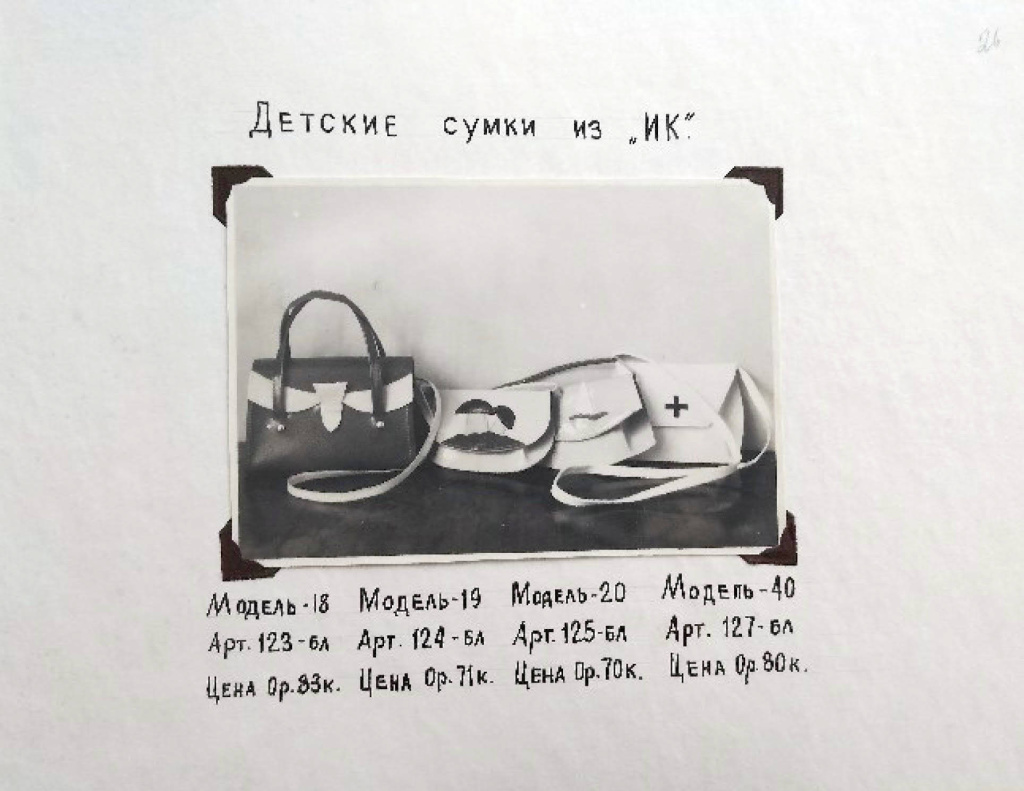 26
Детские сумки из „ИК".
Модель-18 Модель-19 Модель-20 Модель-40
Арт. 123-бл Арт. 124-бл Арт. 125-бл Арт. 127-бл
Цена 0р.83к. Цена 0р.71к. Цена 0р.70к. Цена 0р.80к.